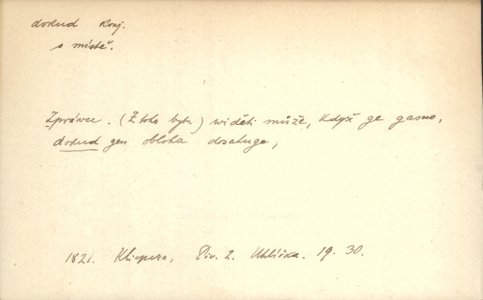 dokud konj.
o místě.
Zprávce. (Z toho bytu) widěti může, když ge gasno,
dokud gen obloha dosahuge,
1821. Klicpera, Div. 2. Uhlířka. 19. 30.